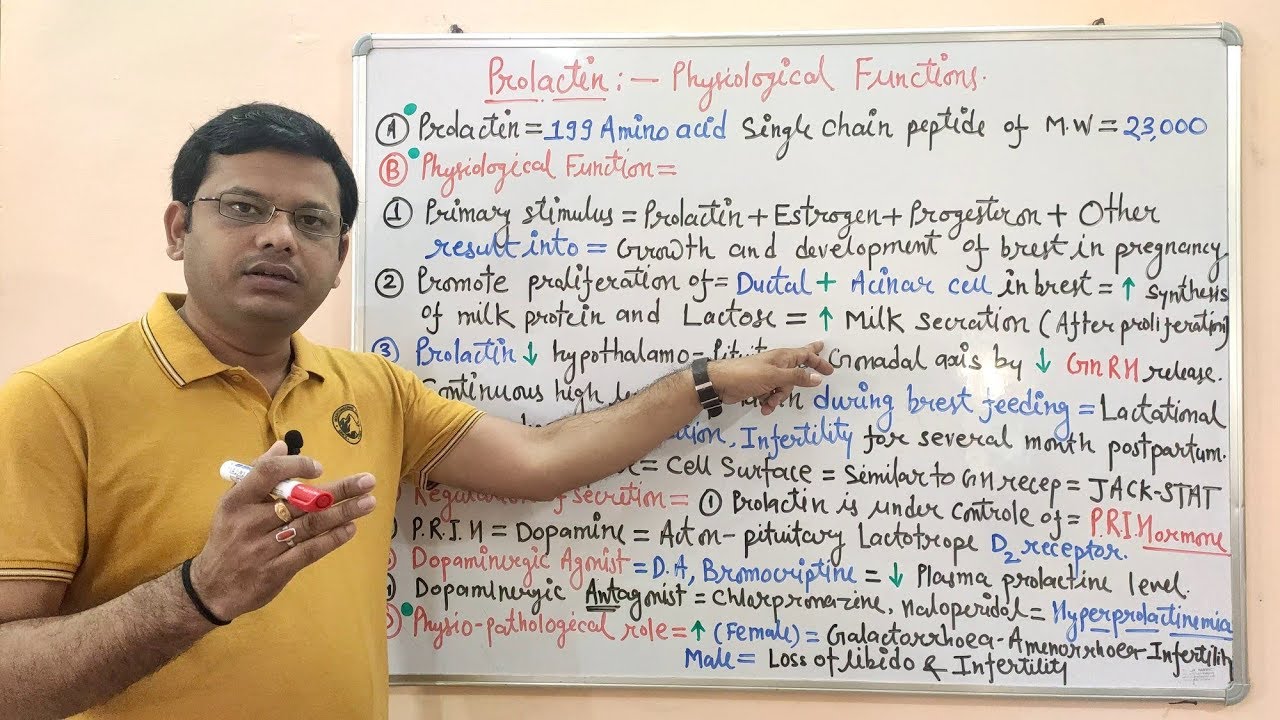 Prolactin :— Physiological Functions.
Ⓐ Prolactin = 199 Amino acid single chain peptide of M.W = 23,000
Ⓑ Physiological Function =
① Primary stimulus = Prolactin + Estrogen + Progesteron + Other
result into = Growth and development of brest in pregnancy
② Promote proliferation of = Ductal + Acinar cell in brest = ↑ synthesis
of milk protein and Lactose = ↑ Milk secration (After proliferation)
③ Prolactin ↓ hypothalamo- Gonadal axis by ↓ GnRH release.
Continuous high during brest feeding = Lactational
Infertility for several month postpartum.
= Cell Surface = Similar to GH recep = JACK-STAT
Regulation of secretion = ① Prolactin is under controle of = P.R.I.Hormone
P.R.I.H = Dopamine = Act on - pituitary Lactotrope D2 receptor.
Dopaminergic Agonist = D.A, Bromocriptine = ↓ Plasma prolactine level.
Dopaminergic Antagonist = Chlorpromazine, Haloperidol = Hyperprolactinemia
Physio-pathological role = ↑ (Female) = Galactorrhoea-Amenorrhoea-Infertility
Male = Loss of libido & Infertility